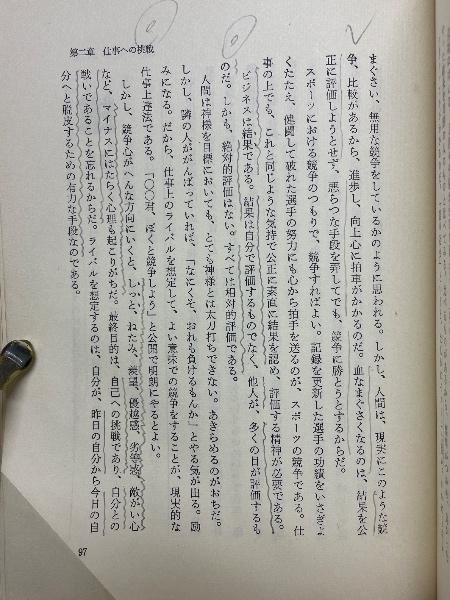 第二章　仕事への挑戦
まぐさい、無用な競争をしているかのように思われる。しかし、人間は、現実にこのような競
争、比較があるから、進歩し、向上心に拍車がかかるのだ。血なまぐさくなるのは、結果を公
正に評価しようとせず、悪らつな手段を弄してでも、競争に勝とうとするからだ。
スポーツにおける競争のつもりで、競争すればよい。記録を更新した選手の功績をいさぎよ
くたたえ、健闘して破れた選手の努力にも心から拍手を送るのが、スポーツの競争である。仕
事の上でも、これと同じような気持で公正に素直に結果を認め、評価する精神が必要である。
ビジネスは結果である。結果は自分で評価するものでなく、他人が、多くの目が評価するも
のだ。しかも、絶対的評価はない。すべては相対的評価である。
人間は神様を目標においても、とても神様とは太刀打ちできない。あきらめるのがおちだ。
しかし、隣の人ががんばっていれば、「なにくそ、おれも負けるもんか」とやる気が出る。励
みになる。だから、仕事上のライバルを想定して、よい意味での競争をすることが、現実的な
仕事上達法である。「〇〇君、ぼくと競争しよう」と公開で明朗にやるとよい。
しかし、競争心がへんな方向にいくと、しっと、ねたみ、羨望、優越感、劣等感、敵がい心
など、マイナスにはたらく心理も起こりがちだ。最終目的は、自己への挑戦であり、自分との
戦いであることを忘れるからだ。ライバルを想定するのは、自分が、昨日の自分から今日の自
分へと脱皮するための有力な手段なのである。
97